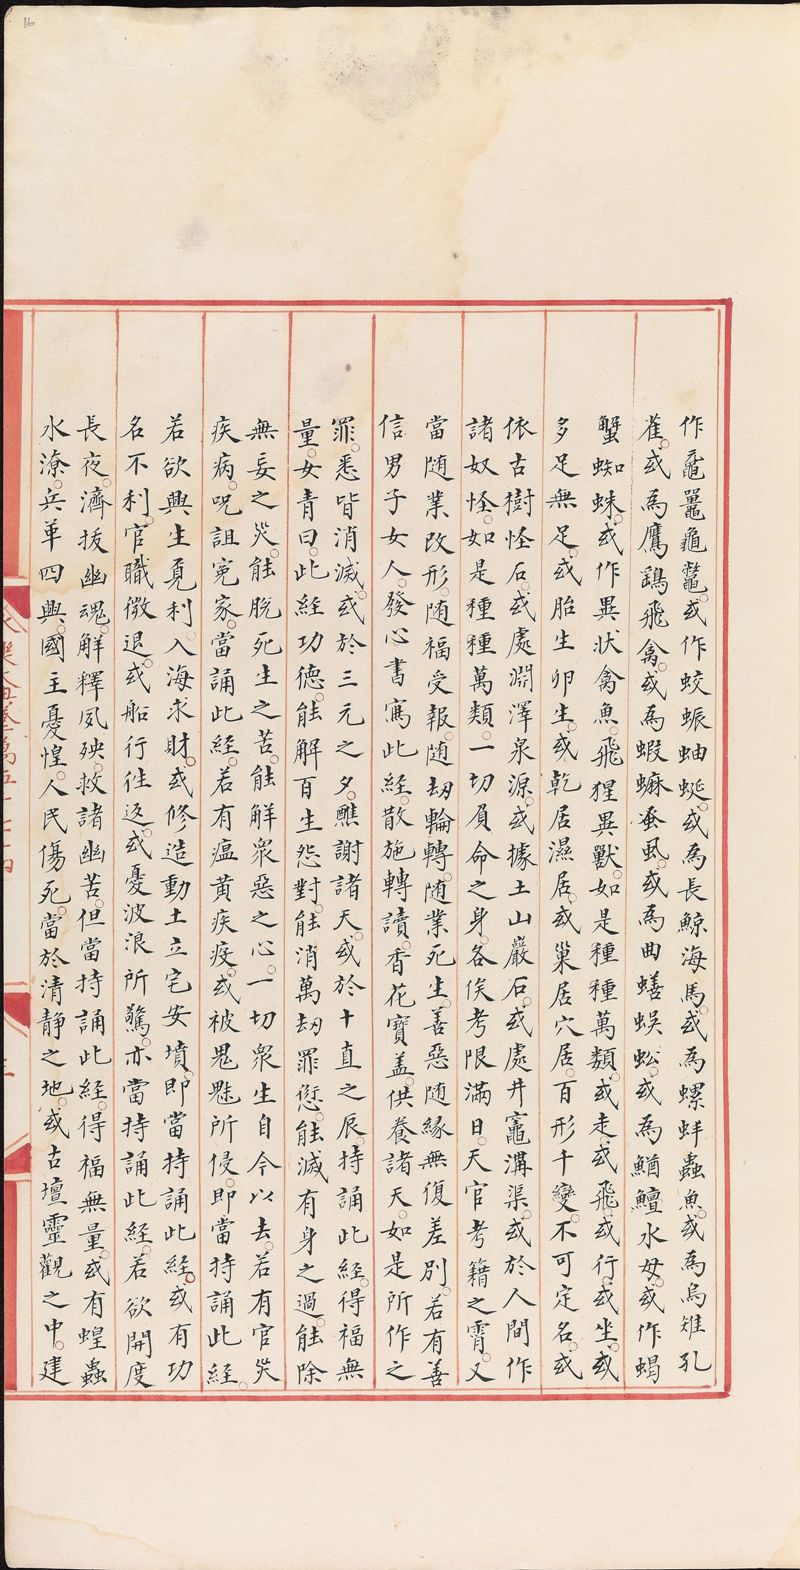 作黿鼉龜鼈。或作蛟蜃蚰蜒。或為長鯨海馬。或為螺蚌蟲魚。或為烏雉孔
雀。或為鷹鷂飛禽。或為蝦蟆蚤虱。或為曲蟮蜈蚣。或為鰌鱣水母。或作蝎
蟹蜘蛛。或作異狀禽魚。飛猩異獸。如是種種萬類。或走或飛。或行或坐。或
多足無足。或胎生卵生。或乾居濕居。或巢居穴居。百形千變。不可定名。或
依古樹怪石。或處淵澤泉源。或據土山巖石。或處井竈溝渠。或於人間作
諸奴怪。如是種種萬類。一切負命之身。各俟考限滿日。天官考籍之霄。又
當随業改形。随福受報。随劫輪轉。随業死生。善惡随緣。無復差別。若有善
信男子女人。發心書寫此經。散施轉讀。香花寶盖。供養諸天。如是所作之
罪。悉皆消滅。或於三元之夕。醮謝諸天。或於十直之辰。持誦此經。得福無
量。女青曰。此經功德。能解百生怨對。能消萬劫罪愆。能滅有身之過。能除
無妄之災。能脫死生之苦。能解衆惡之心。一切衆生自今以去。若有官災
疾病。呪詛寃家。當誦此經。若有瘟黃疾疫。或被鬼魅所侵。即當持誦此經。
若欲興生覔利。入海求財。或修造動土立宅安墳。即當持誦此經。或有功
名不利。官職微退。或船行徃返。或憂波浪所驚。亦當持誦此經。若欲開度
長夜。濟拔幽魂。解釋夙殃。救諸幽苦。但當持誦此經。得福無量。或有蝗蟲
水潦。兵革四興。國主憂惶。人民傷死。當於清靜之地。或古壇靈觀之中。建
16